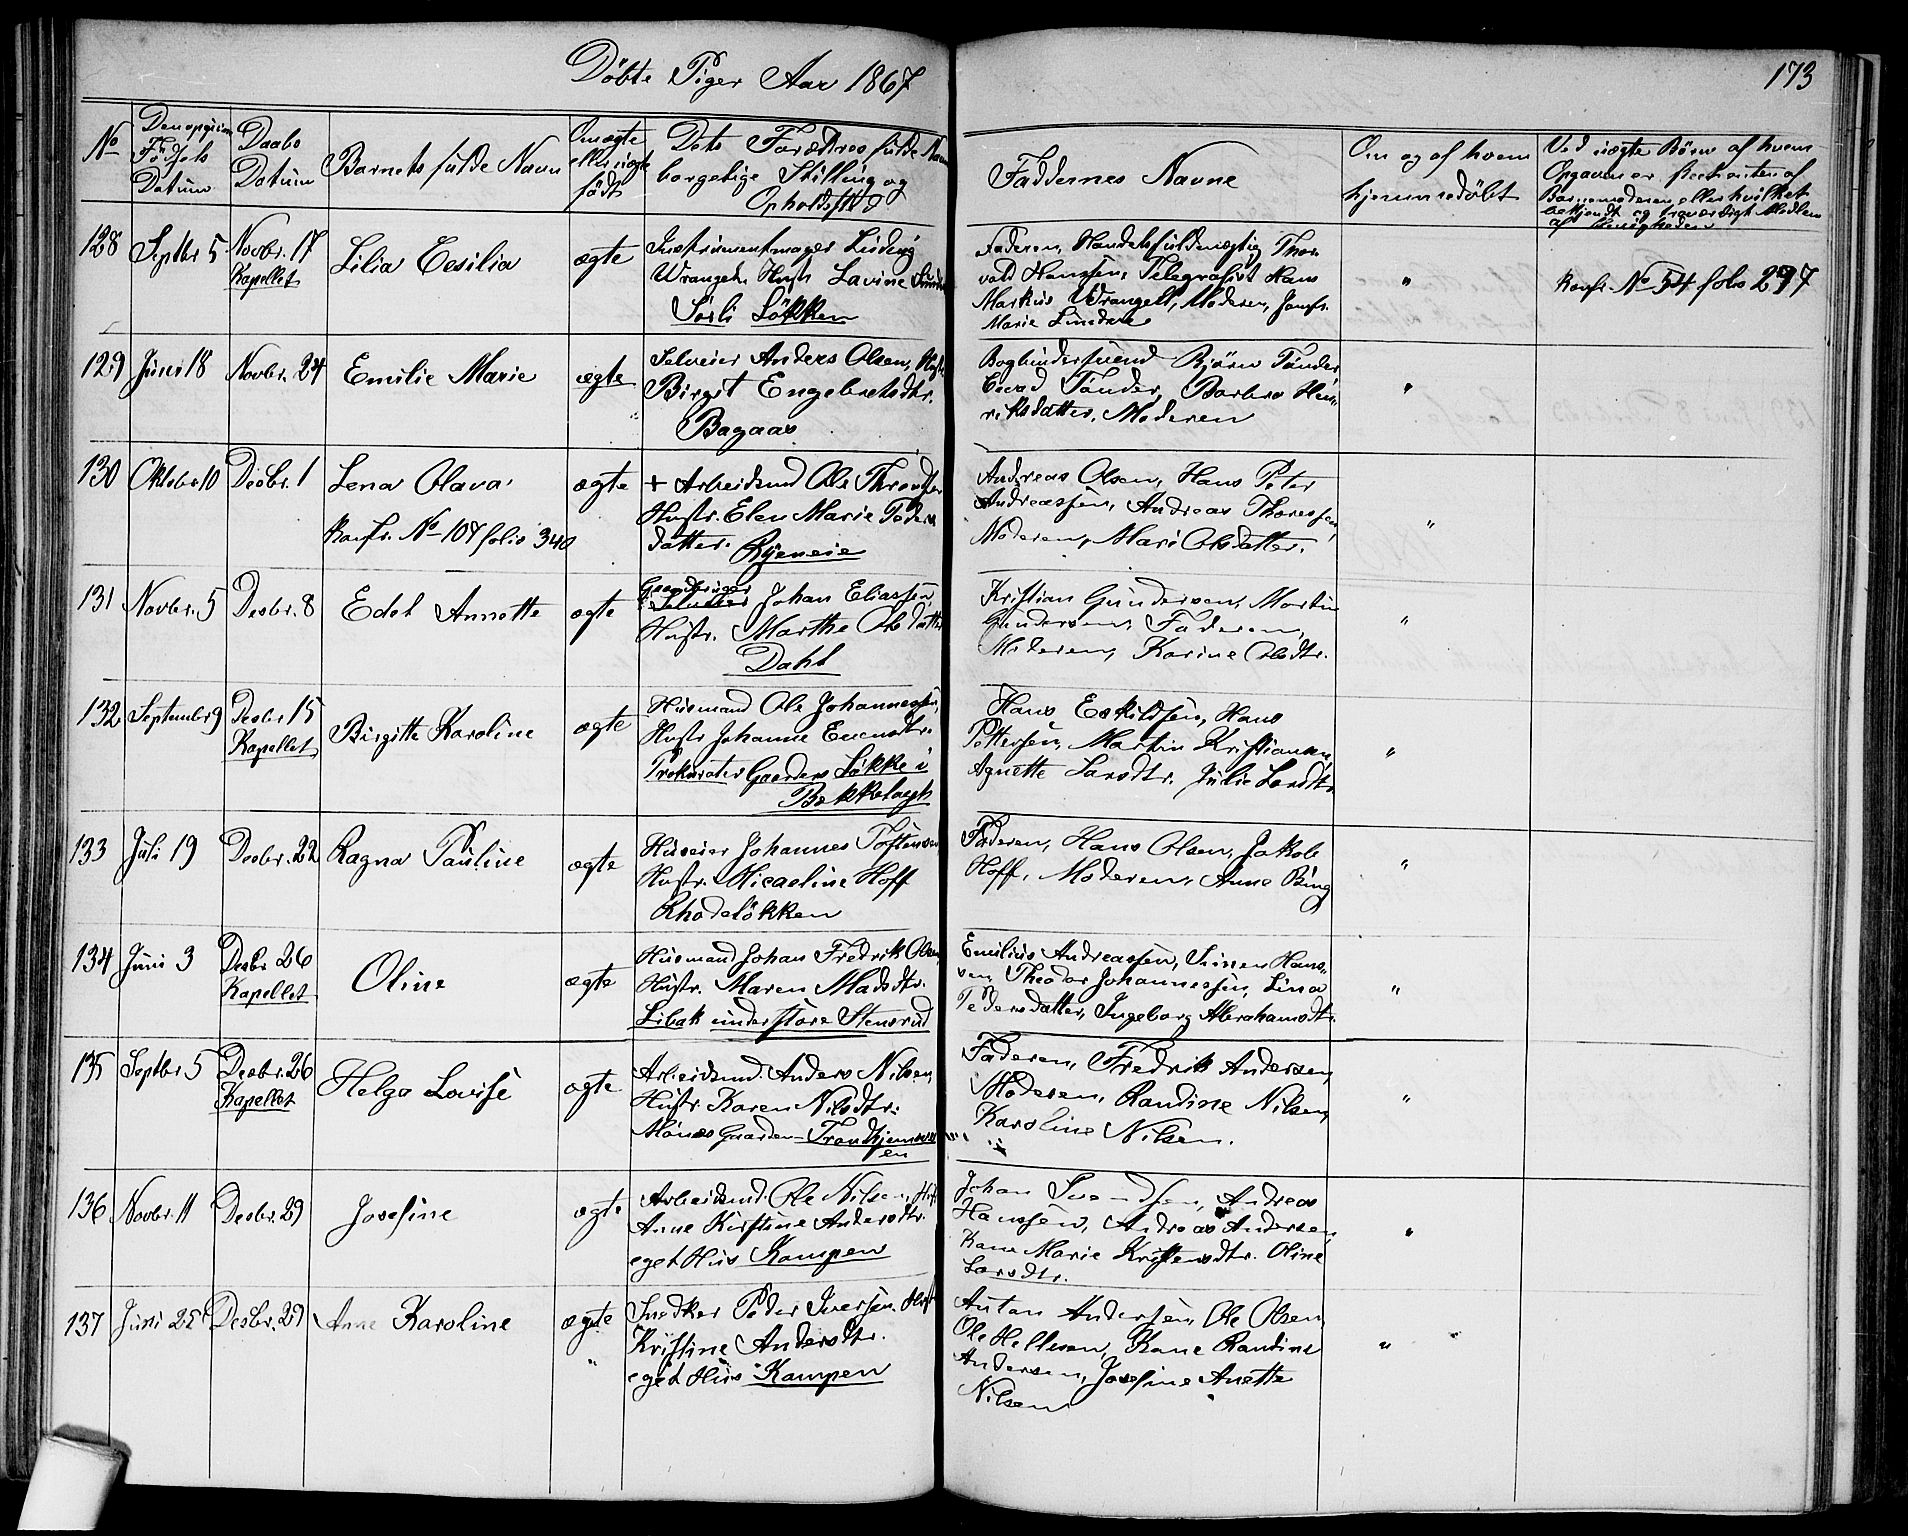 Döbte Piger Aar 1867
173
No
Födsels
Datum
Daabs
Datum
Barnets fulde Navn
Om ægte
eller uægte
födt
Dets Forældres fulde Navn
borgelige Stilling og
Opholdssted
Faddernes Navne
Om og af hvem
hjemmedöbt
Ved uægte Börn af hvem
Opgaven er
Barnemoderen eller hvilket
bekjendt og troværdigt Medlem
af Menigheden
128
Septbr 5
Novbr. 17
Kapellet
Lilia Cesilia
ægte
Instrumentmager Ludvig
Wrangel Hustr Lavine
Sörli Lökken
Faderen, Handelsfuldmægtig Thor
vald Hanssen, Telegrafist Hans
Markus Wrangell, Moderen, Jomfr.
Marie
"
Konf. No 54 folio 297
129
Juni 18
Novbr. 24
Emilie Marie
ægte
Selveier Anders Olsen, Hustr
Birgit Engebretsdtr.
Bagaas
Bogbindersvend Björn Tönder
Tönder, Barbro Hen
riksdatter, Moderen
"
130
Oktober 10
Desbr. 1
Lena Olava
Konfr. No 107 folio 340
ægte
+ Arbeidsmd Ole
Hustr. Elen Marie Peders
datter. Ryeneie
Andreas Olsen, Hans Peter
Andreassen, Andreas Thoressen,
Moderen, Mari Olsdatter.
"
131
Novbr. 5
Desbr. 8
Edel Annette
ægte
Gaardbruger
Selveier Johan Eliassen,
Hustr. Marthe Olsdatter
Dahl
Kristian Gundersen, Martin
Gundersen, Faderen,
Moderen, Karine Olsdtr.
"
132
September 9
Desbr 15
Kapellet
Birgitte Karoline
ægte
Husmand Ole Johannessen,
Hustr Johanne Evensdtr.
Prokurator Gaarders Lökke i
Bækkelaget
Hans Eskildsen, Hans
Pettersen, Martin Kristiansen,
Agnette Larsdtr. Julie Larsdtr
"
133
Juli 19
Desbr. 22
Ragna Pauline
ægte
Huseier Johannes Töftensen
Hustr. Micaeline Hoff
Rhodelökken
Faderen, Hans Olsen, Jakob
Hoff, Moderen, Anne Bing
"
134
Juni 3
Desbr 26
Kapellet
Oline
ægte
Husmand Johan Fredrik Olsen
Hustr. Maren Madsdtr.
Libak under store Stensrud
Emilius Andreassen, Simen Hans
sen, Theodor Johannessen, Lina
Pedersdatter, Ingeborg Abrahamsdtr.
"
135
Septbr 5
Desbr. 26
Kapellet
Helga Lovise
ægte
Arbeidsmd. Anders Nilsen,
Hustr. Karen Nilsdtr.
Mönes Gaarden Trondhjemsvei
en
Faderen, Fredrik Andersen,
Moderen, Randine Nilsen,
Karoline Nilsen.
"
136
Novbr. 11
Desbr. 29
Josefine
ægte
Arbeidsmd. Ole Nilsen, Hust
Anne Kirstine Andersdtr.
eget Hus Kampen
Johan Svendsen, Andreas
Hanssen, Andreas Andersen,
Kone Marie Kristensdtr. Oline
Larsdtr.
"
137
Juni 25
Desbr. 29
Anne Karoline
ægte
"
Snedker Peder Iversen, Hust
Kristine Andersdtr.
eget Hus Kampen
Anton Andersen, Ole Olsen,
Ole Hellesen, Kone Randine
Andersen, Josefine Anette
Nilsen
"